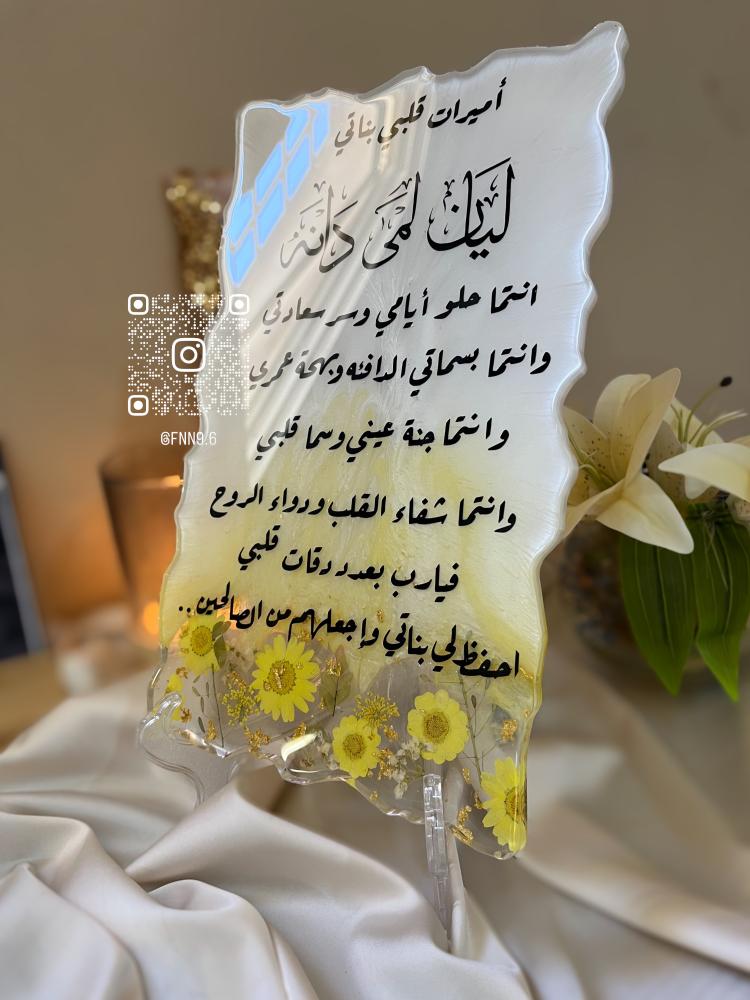 أميرات قلبي بناتي
ليان لمى دانه
انتما حلو أيامي وسر سعادتي
وانتما بسماتي الدافئه وبهجة عمري
وانتما جنة عيني وسما قلبي
وانتما شفاء القلب ودواء الروح
فيارب بعدد دقات قلبي
احفظ لي بناتي وإجعلهم من الصالحين..
@FNN9.6